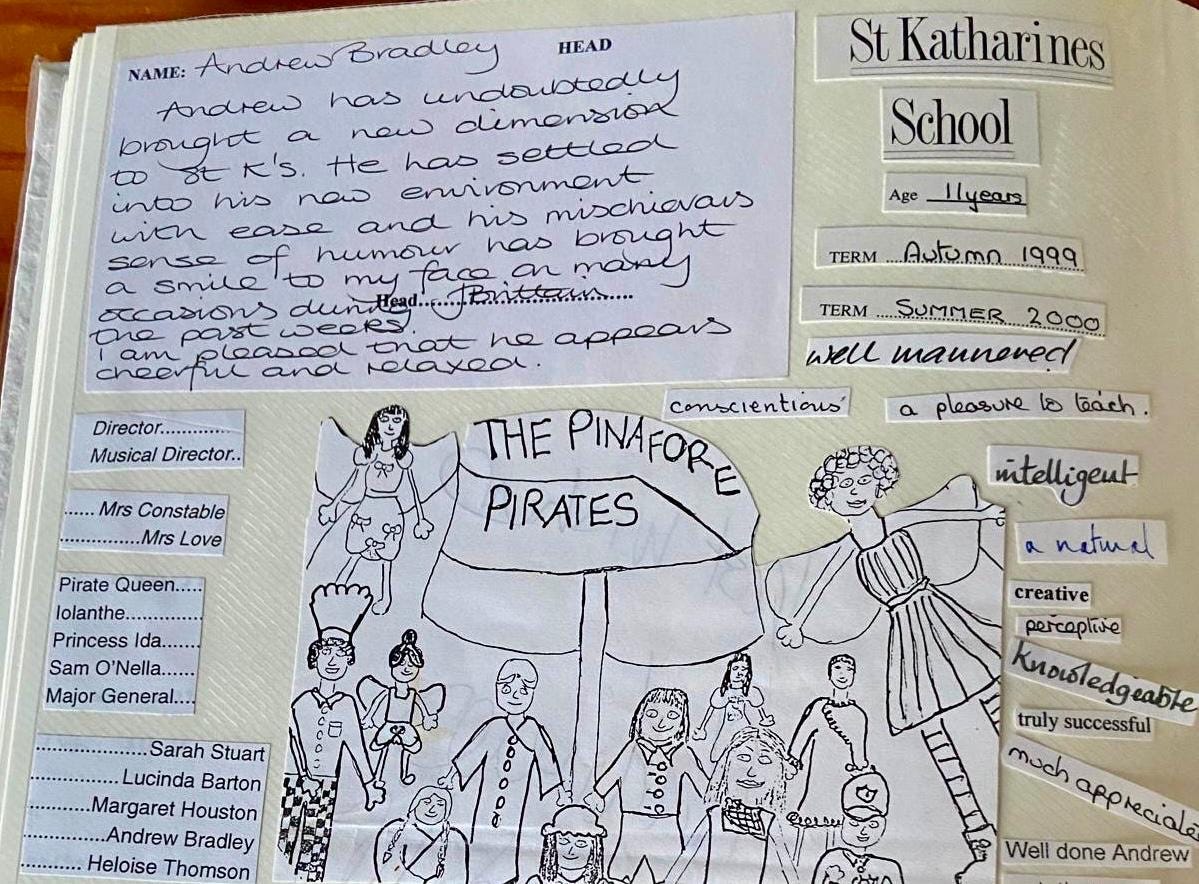 NAME: Andrew Bradley HEAD
Andrew has undoubtedly
brought a new dimension
to St K's. He has settled
into his new environment
with ease and his mischievous
sense of humour has brought
a smile to my face on many
occasions during
Head.......JBrittain..........
the past weeks.
I am pleased that he appears
cheerful and relaxed.
St Katharines
School
Age 11 years
TERM ...Autumn 1999
TERM ....SUMMER 2000
well mannered
conscientious
a pleasure to teach.
intelligent
a natural
creative
perceptive
Knowledgeable
truly successful
much appreciated
Well done Andrew
Director.............
Musical Director..
...... Mrs Constable
...............Mrs Love
Pirate Queen.....
Iolanthe..............
Princess Ida.......
Sam O'Nella......
Major General....
.....................Sarah Stuart
................Lucinda Barton
...........Margaret Houston
................Andrew Bradley
........... Heloise Thomson
THE PINAFORE
PIRATES